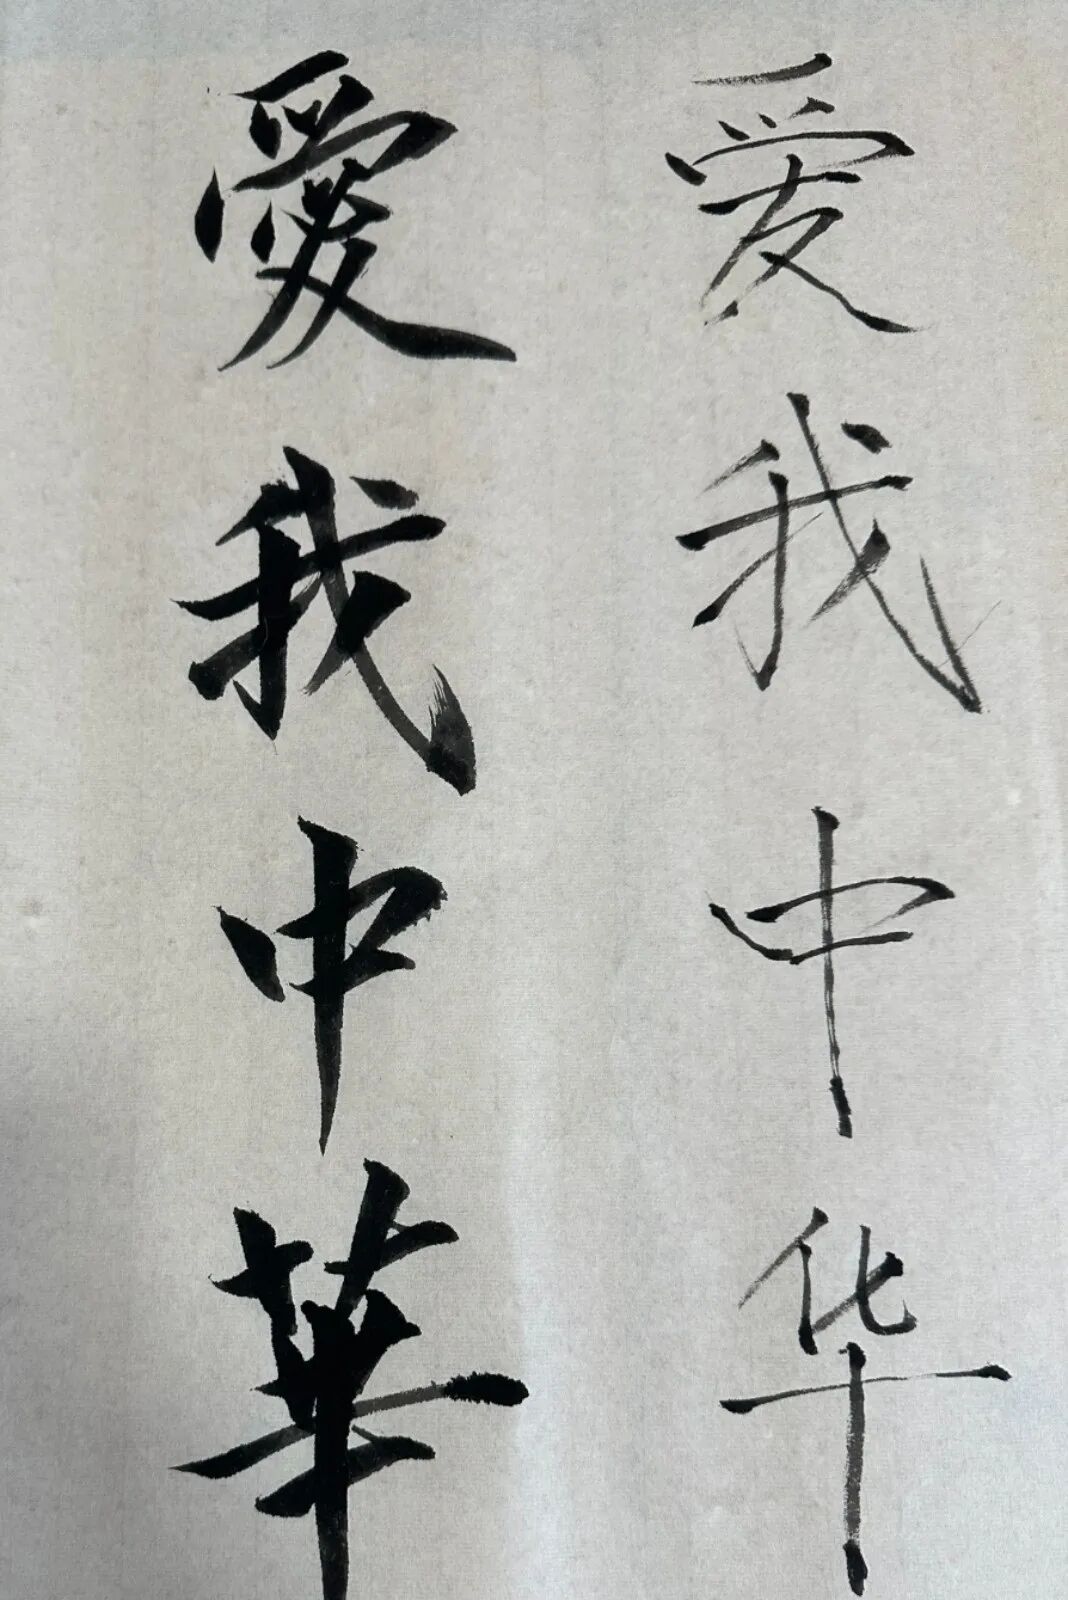 爱我中华
愛我中華